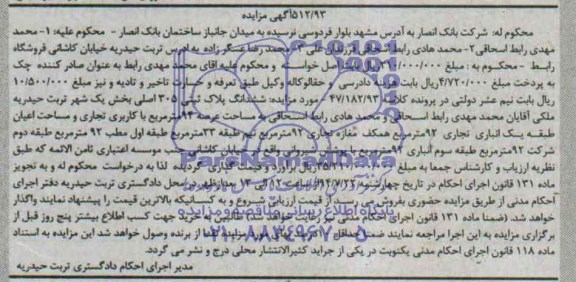 ۵۱۲/۹۳آگهی مزایده
محکوم له: شرکت بانک انصار به آدرس مشهد بلوار فردوسی نرسیده به میدان جانباز ساختمان بانک انصار - محکوم علیه: ۱-محمد
مهدی رابط اسحاقی۲- محمد هادی رابط اسحاقی فرزند علی ۳-محمد رضا عسگر زاده به ادرس تربت حیدریه خیابان کاشانی فروشگاه
رابط - محکوم به : مبلغ خواسته و محکوم علیه اقای محمد مهدی رابط به عنوان صادر کننده چک
به پرداخت مبلغ ۴/۷۲۰/۰۰۰ریال بابت هزینه دادرسی و حق‌الوکاله وکیل طبق تعرفه و خسارت تاخیر و تادیه و نیز مبلغ ۱۰/۵۰۰/۰۰۰
ریال بابت نیم عشر دولتی در پرونده کلاسه ۴۷/۱۸۲/۹۳ مورد مزایده: ششدانگ پلاک ثبتی ۳۰۵ اصلی بخش یک شهر تربت حیدریه
ملکی آقایان محمد مهدی رابط اسحاقی و محمد هادی رابط اسحاقی به مساحت عرصه ۹۳مترمربع با کاربری تجاری و مساحت اعیان
طبقه یک انباری تجاری ۹۲مترمربع همکف مغازه تجاری ۹۲مترمربع نیم طبقه ۳۳مترمربع طبقه اول مطب ۹۲ مترمربع طبقه دوم
شرکت ۹۲مترمربع طبقه سوم انباری ۹۲مترمربع با پوشش شیروانی واقع در خیابان کاشانی جنب موسسه اعتباری ثامن الائمه که طبق
نظریه ارزیاب و کارشناس جمعا به مبلغ ریال برآورد و قیمت گذاری گردیده لذا به درخواست محکوم له و به تجویز
ماده ۱۳۱ قانون اجرای احکام در تاریخ چهارشنبه از ساعت ۱۲ الی ۱۳ بعدازظهر در محل دادگستری تربت حیدریه دفتر اجرای
احکام مدنی از طریق مزایده حضوری بفروش می رسد از قیمت ارزیابی شروع و به کسانیکه بالاترین قیمت را پیشنهاد نمایند واگذار
خواهد شد. (ضمنا ماده ۱۳۱ قانون اجرای احکام مدنی نیز رعایت خواهد شد) خرید جهت کسب اطلاع بیشتر پنج روز قبل از
برگزاری مزایده به این اجرا مراجعه نمایند ضمنا حداقل ۱۰ درصد بهای مورد مزایده نقدا از برنده وصول خواهد شد این مزایده به استناد
ماده ۱۱۸ قانون اجرای احکام مدنی یکنوبت در یکی از جراید کثیرالانتشار محلی درج و نشر می گردد.
مدیر اجرای احکام دادگستری تربت حیدریه
ParsNamadData
پایگاه اطلاع رسانی مناقصه و مزایده
۰۲۱-۸۸۳۴۹۶۷۰-۵